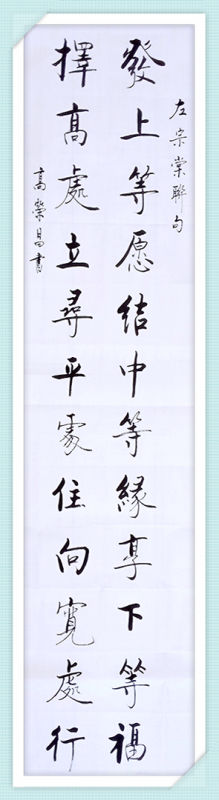 左宗棠聯句
發上等愿结中等緣享下等福
擇高處立尋平處住向寬處行
高榮昌書